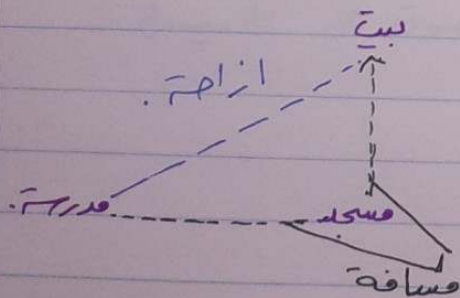 بيت
ازاحة.
مدرسة.
مسجد
مسافة